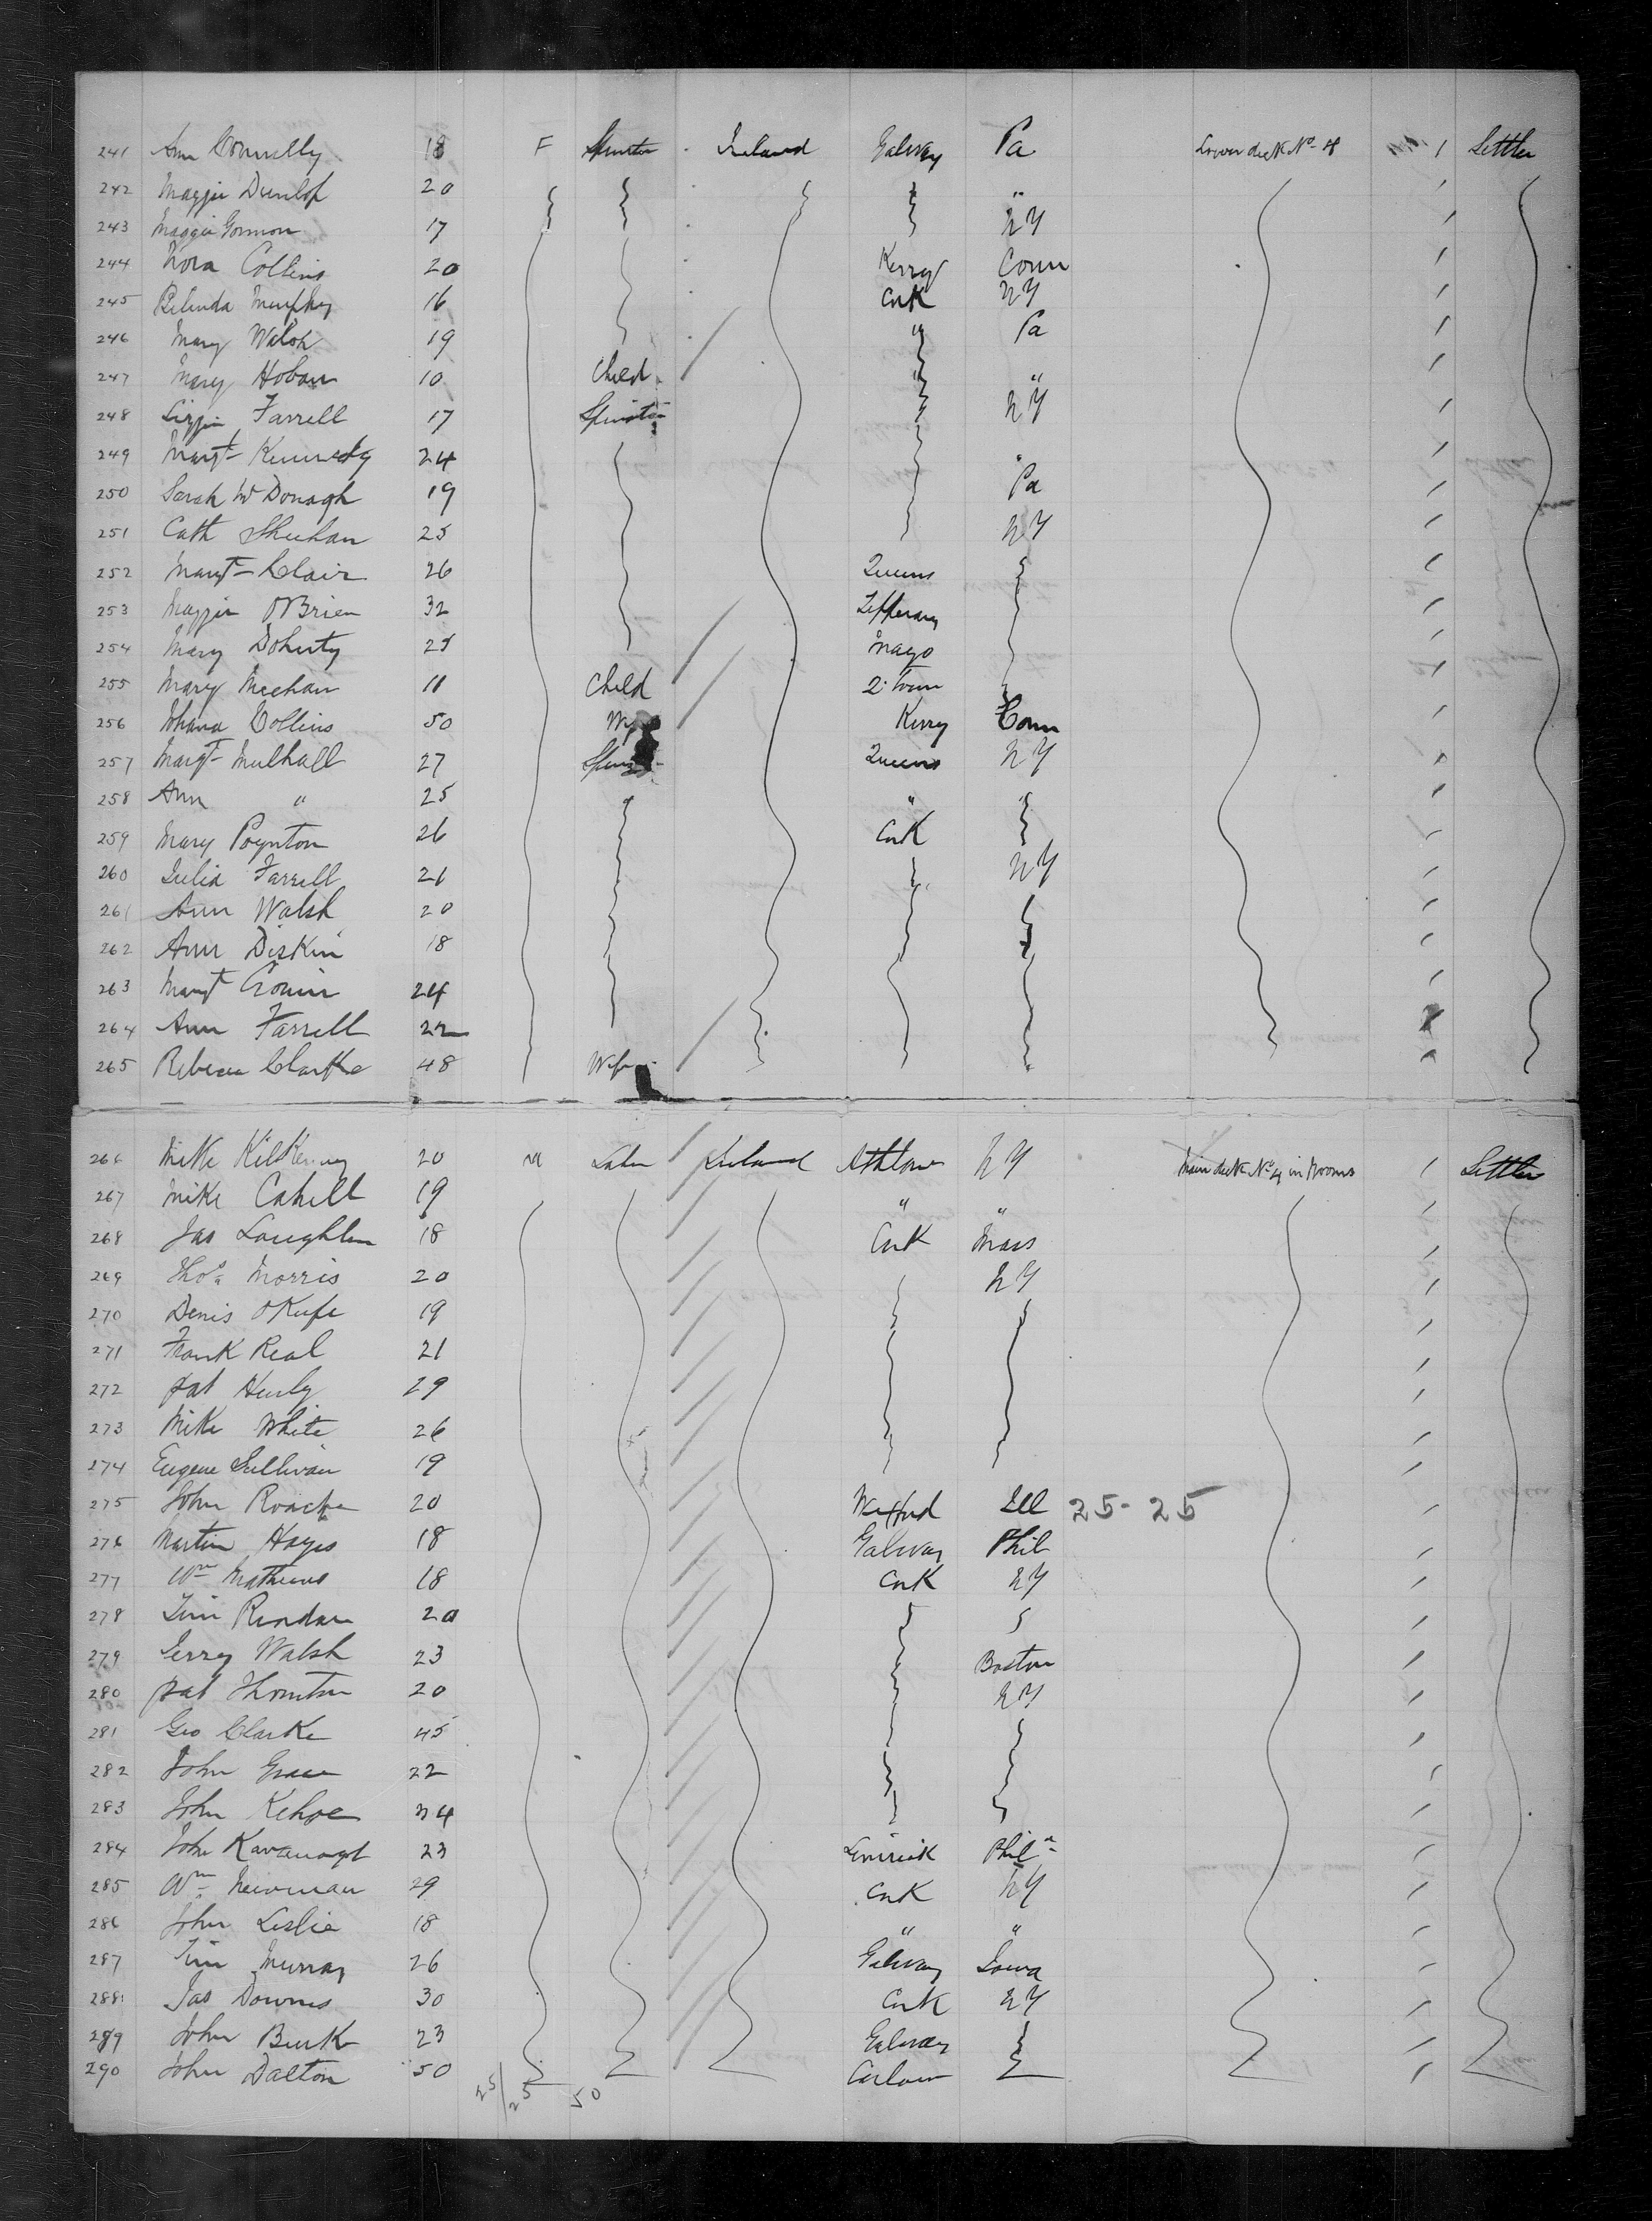 241 Ann Connelly 18 F Spinster Ireland Galway Pa Lower deck No 4 1 Settler
242 Maggie Dunlop 20 "
243 Maggie Gormon 17 NY
244 Nora Collins 20 Kerry Conn
245 Belinda Murphy 16 Cork NY
246 Mary Walsh 19 " Pa
247 Mary Hoban 10 Child " "
248 Lizzie Farrell 17 Spinster NY
249 Margt Kennedy 24 "
250 Sarah McDonagh 19 Pa
251 Cath Sheehan 25 NY
252 Margt Clair 26 Queens
253 Maggie O'Brien 32 Tipperary
254 Mary Doherty 25 Mayo
255 Mary Meehan 11 Child Q. town
256 Johana Collins 50 Kerry Conn
257 Margt Mulhall 27 Queens NY
258 Ann " 25 " "
259 Mary Poynton 26 Cork
260 Julia Farrell 21 NY
261 Ann Walsh 20
262 Ann Diskin 18
263 Margt Cronin 24
264 Ann Farrell 22
265 Rebecca Clarke 48 Wife
266 Mike Kilkenny 20 M Labr Ireland Athlone NY Main deck No 4 in Rooms 1 Settler
267 Mike Cahill 19 " "
268 Jas Loughlin 18 Cork Mass
269 Thos Morris 20 NY
270 Denis O'Keefe 19
271 Frank Real 21
272 Pat Henly 29
273 Mike White 26
274 Eugene Sullivan 19
275 John Roache 20 Wexford Ill 25-25
276 Martin Hayes 18 Galway Phil
277 Wm Mathews 18 Cork NY
278 Tim Riordan 20
279 Jerry Walsh 23 Boston
280 Pat Thornton 20 NY
281 Geo Clarke 45
282 John Grace 22
283 John Kehoe 24
284 John Kavanagh 23 Limerick Phila
285 Wm Newman 29 Cork NY
286 John Leslie 18 " "
287 Tim Murray 26 Galway Iowa
288 Jas Downes 30 Cork NY
289 John Burk 23 Galway
290 John Dalton 50 Carlow
25/25 50